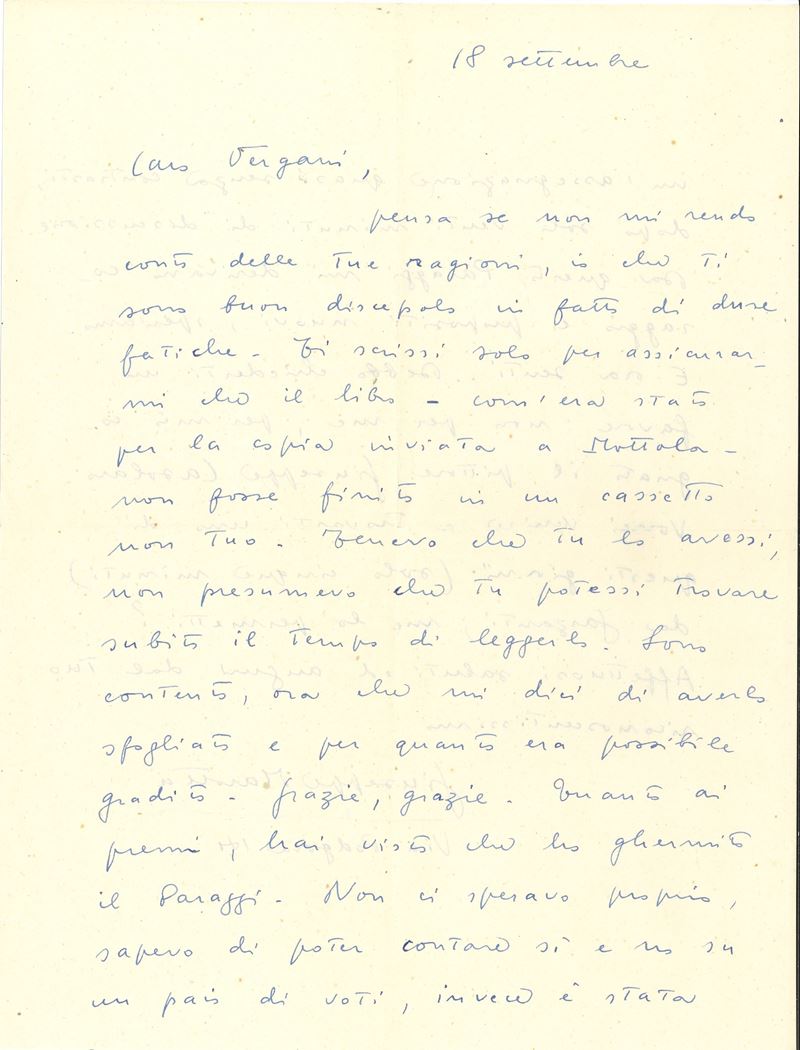 18 settembre
Caro Vergani,
pensa se non mi rendo
conto delle tue ragioni, io che ti
sono buon discepolo in fatto di dure
fatiche - Ti scrissi solo per assicurar-
mi che il libro - com'era stato
per la copia inviata a Mottola -
non fosse finito in un cassetto
non tuo. Tenevo che tu lo avessi,
non presumevo che tu potessi trovare
subito il tempo di leggerlo. Sono
contento, ora che mi dici di averlo
sfogliato e per quanto era possibile
gradito - Grazie, grazie. Quanto ai
premi, hai visto che ho ghermito
il Paraggi - Non ci speravo proprio,
sapevo di poter contare sì e no su
un paio di voti, invece è stata